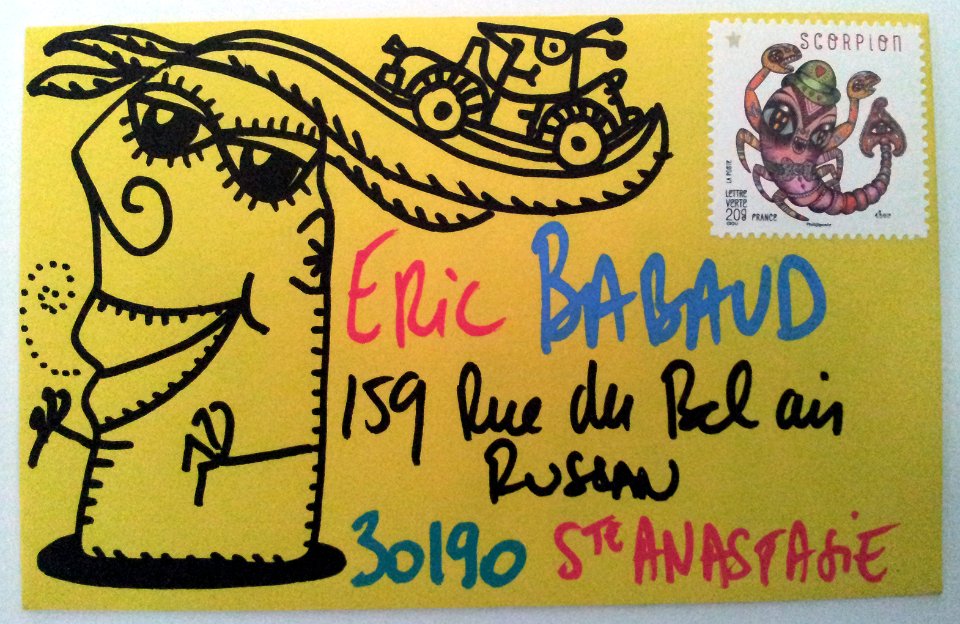 SCORPION
LA POSTE
LETTRE
VERTE
20g FRANCE
ERic BABAUD
159 Rue du Bel air
RUSSAN
30190 STE ANASTASiE